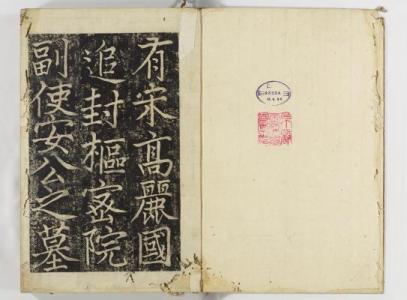 有宋高麗國
追封樞密院
副使安公之墓